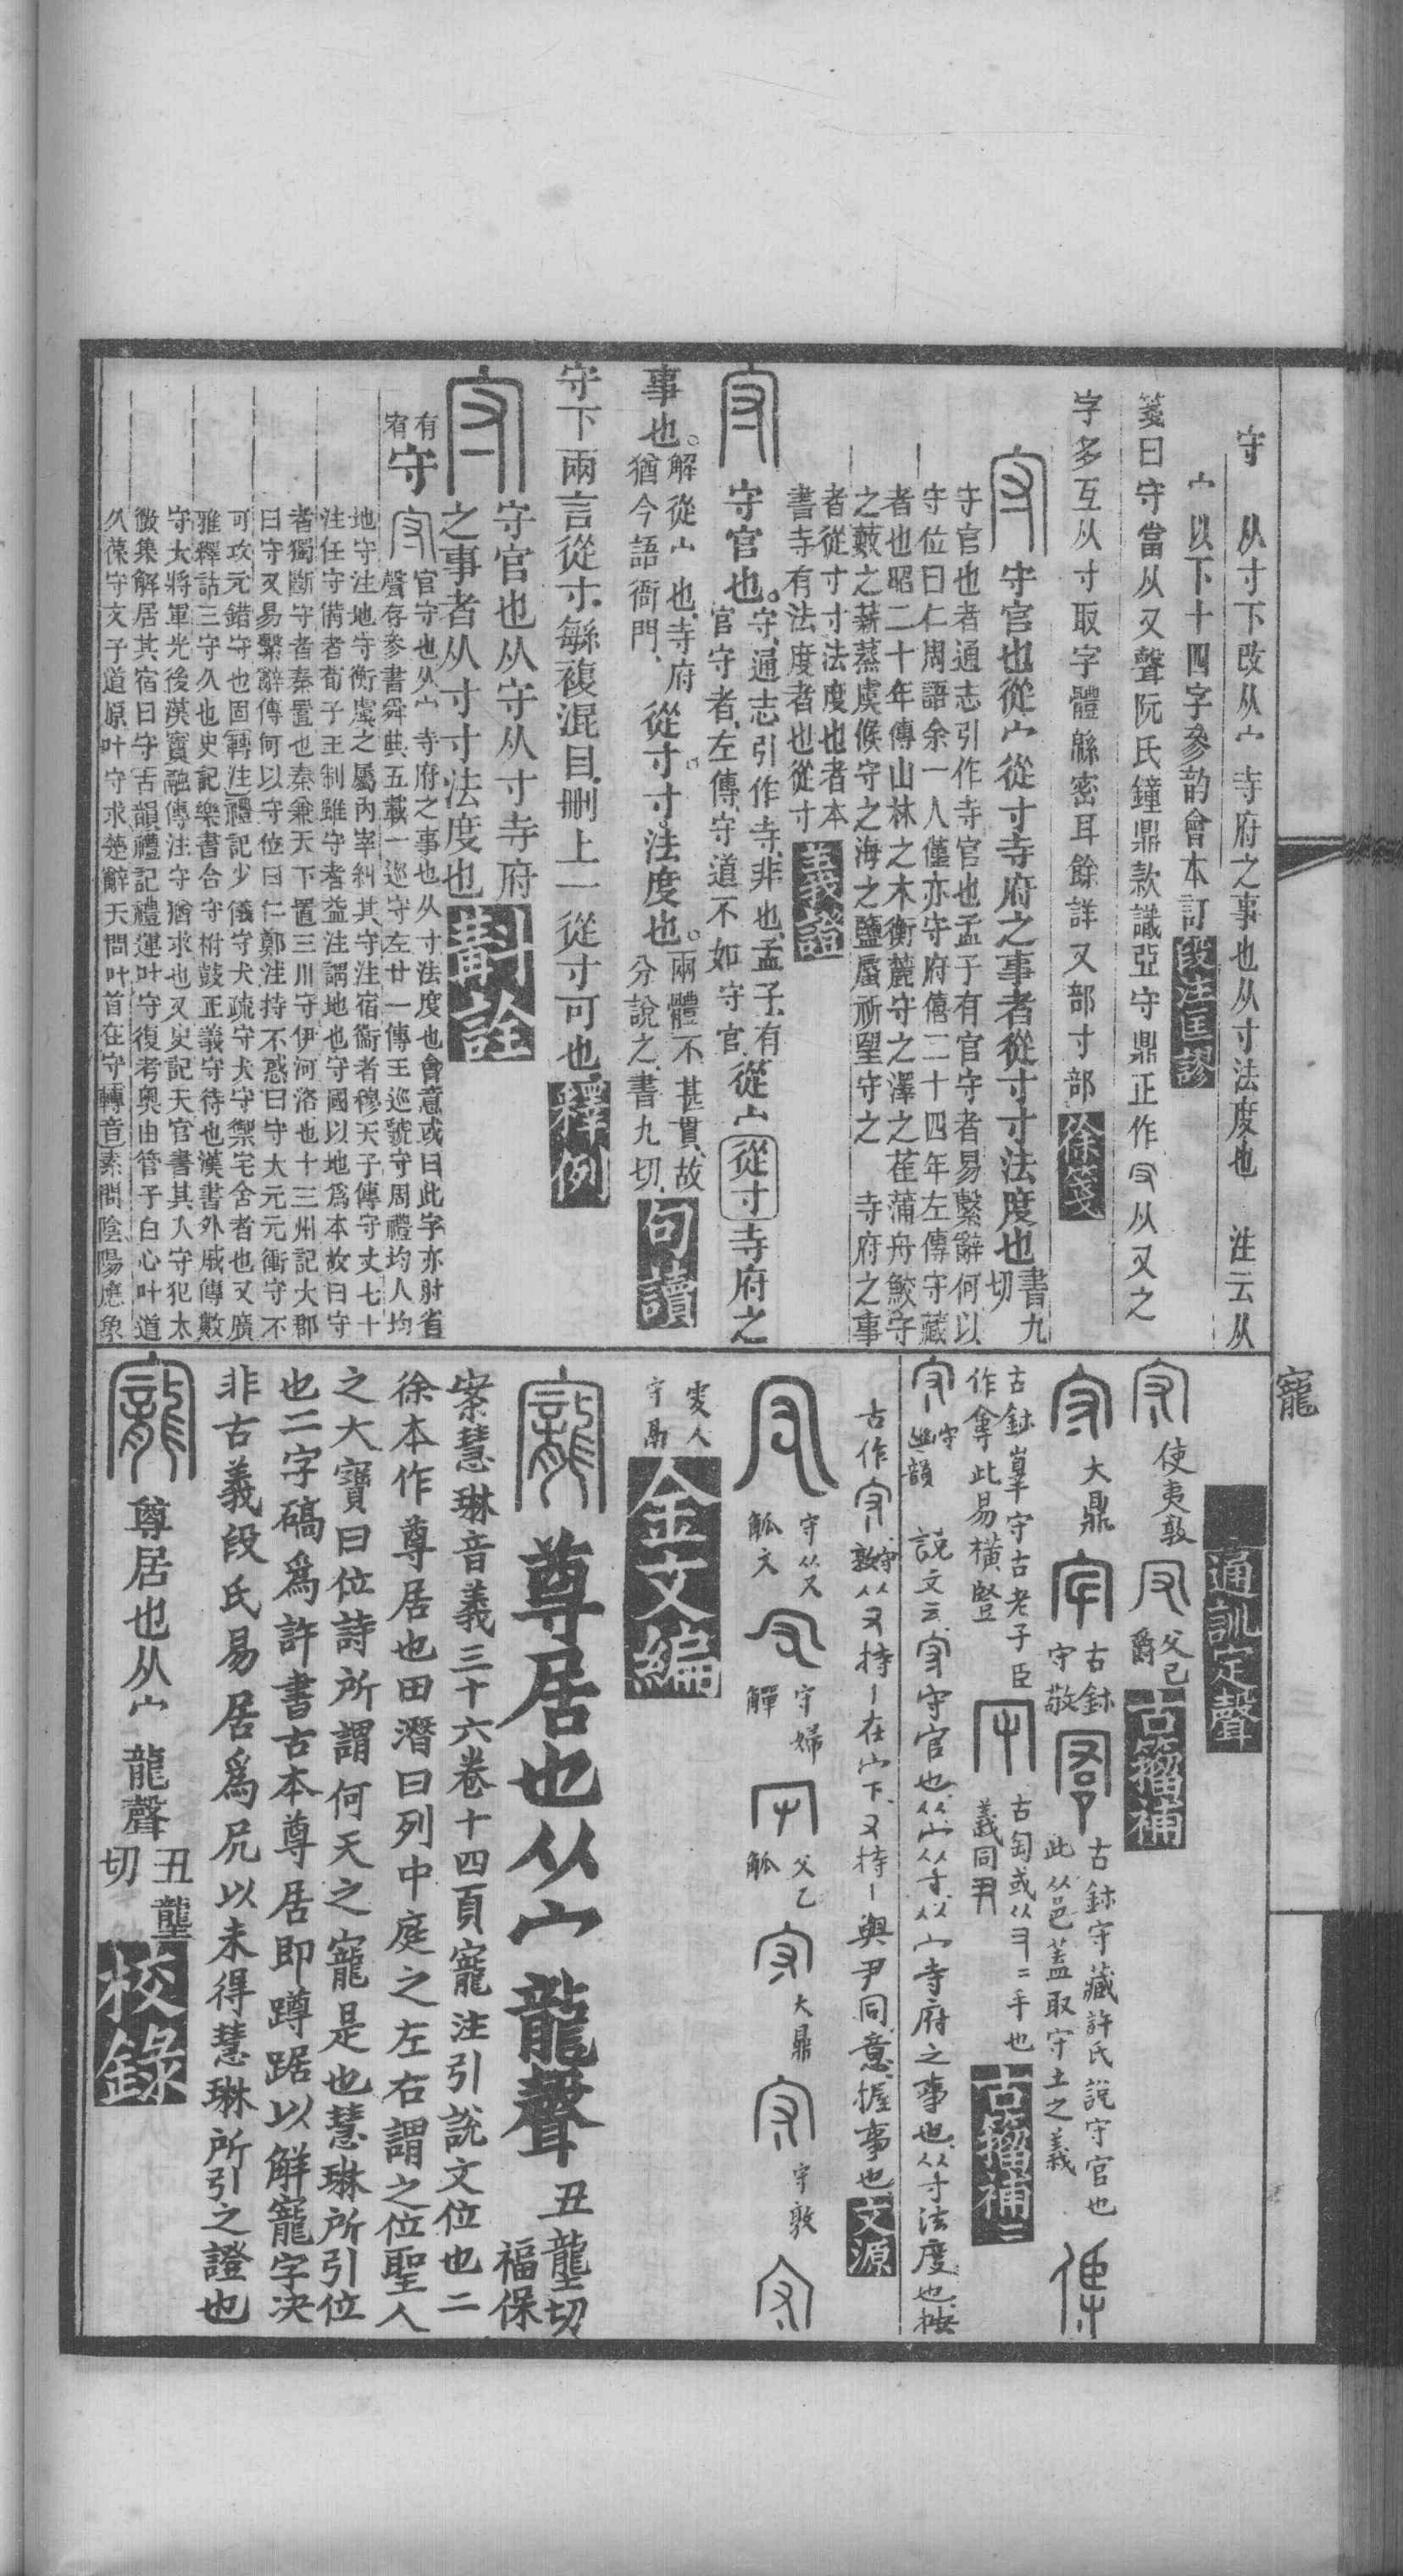 守　从寸下改从宀寺府之事也从寸法度也　注云从
宀以下十四字參韵會本訂段注匡謬
箋曰守當从又聲阮氏鐘鼎款識亞守鼎正作从又之
字多互从寸取字體緐密耳餘詳又部寸部徐箋
守官也從宀從寸寺府之事者從寸寸法度也書九切
守官也者通志引作寺官也孟子有官守者易繫辭何以
守位曰仁周語余一人僅亦守府僖二十四年左傳守藏
者也昭二十年傳山林之木衡麓守之澤之萑蒲舟鮫守
之藪之薪蒸虞候守之海之鹽蜃祈望守之　寺府之事
者從寸寸法度也者本
書寺有法度者也從寸義證
守官也。守、通志引作寺、非也、孟子、有
官守者、左傳、守道不如守官、從宀從寸寺府之
事也。解從宀也、寺府
猶今語衙門、從寸。寸法度也。兩體不甚貫、故
分說之、書九切、句讀
守下兩言從寸、緐複混目、刪上一從寸可也、釋例
守官也从守从寸寺府
之事者从寸寸法度也斠詮
有
宥守
官守也从宀寺府之事也从寸法度也會意或曰此字亦肘省
聲存參書舜典五載一巡守左廿一傳王巡虢守周禮均人均
地守注地守衡虞之屬內宰糾其守注宿衛者穆天子傳守丈七十
注任守備者荀子王制雖守者益注謂地也守國以地爲本故曰守
者獨斷守者秦置也秦兼天下置三川守伊河洛也十三州記大郡
曰守又易繫辭傳何以守位曰仁鄭注持不惑曰守太元元衝守不
可攻元錯守也固轉注禮記少儀守犬疏守犬守禦宅舍者也又廣
雅釋詁三守久也史記樂書合守拊鼓正義守待也漢書外戚傳數
守大將軍光後漢竇融傳注守猶求也又史記天官書其人守犯太
微集解居其宿曰守古韻禮記禮運叶守復考奧由管子白心叶道
久葆守文子道原叶守求楚辭天問叶首在守轉音素問陰陽應象
寵
通訓定聲
使夷敦　父己爵古籀補
大鼎　古鉢守敬　古鉢守藏許氏說守官也
此从邑蓋取守土之義
古鉢守古老子臣
作此易橫豎　古匋或从二手也
義同古籀補二
守幽韻　說文云守官也从宀从寸从宀寺府之事也从寸法度也按
古作守敦从又持丨在宀下、又持丨與尹同意、握事也文源
守从又觚文　守婦觶　父乙觚　大鼎　守敦
守鬲金文編
尊居也从宀龍聲丑壟切福保
案慧琳音義三十六卷十四頁寵注引說文位也二
徐本作尊居也田潛曰列中庭之左右謂之位聖人
之大寶曰位詩所謂何天之寵是也慧琳所引位
也二字碻爲許書古本尊居即蹲踞以解寵字決
非古義段氏易居爲凥以未得慧琳所引之證也
尊居也从宀龍聲丑壟切校錄